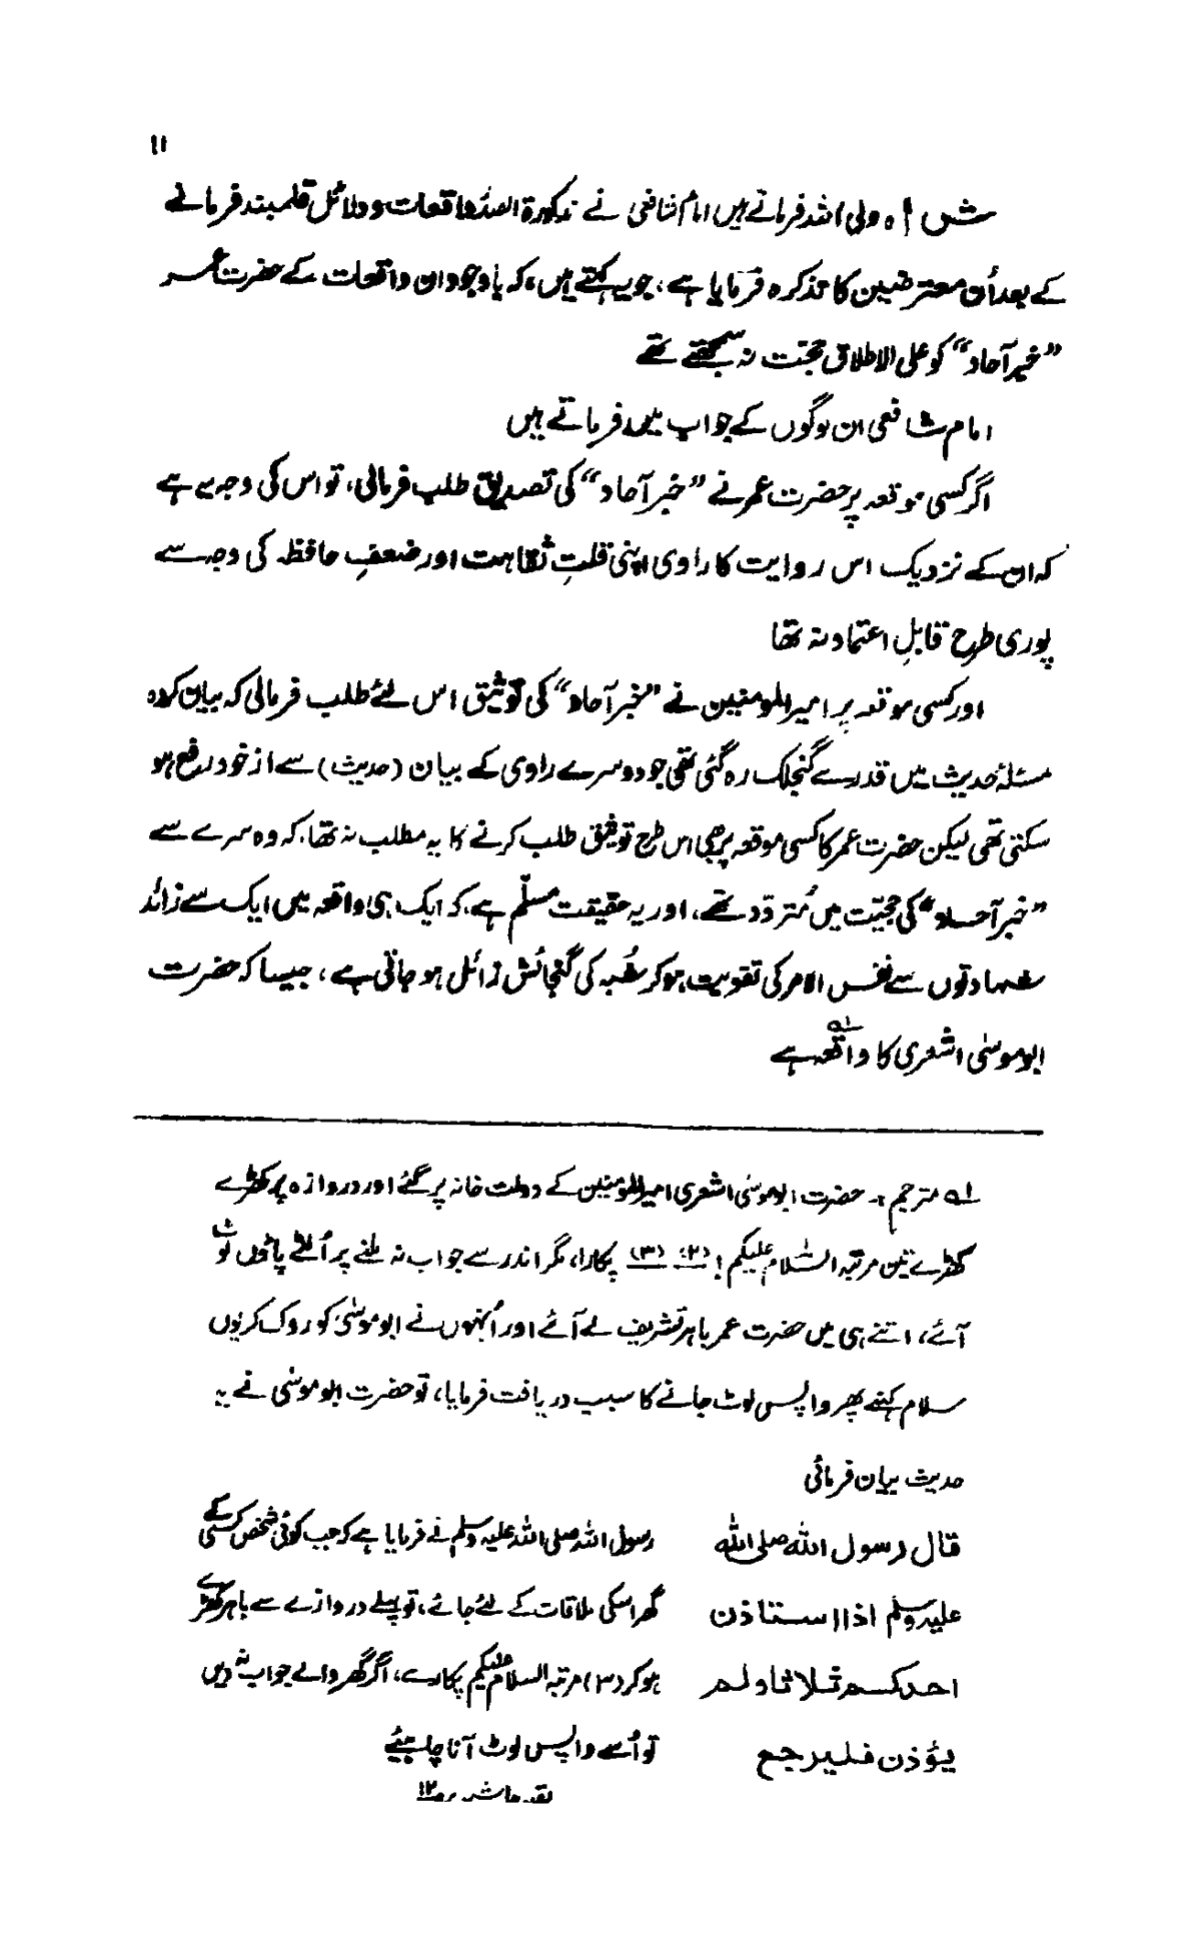 ۱۱
شاہ ولی اللہ فرماتے ہیں امام شافعی نے مذکورۃ الصدر واقعات و دلائل قلمبند فرمانے
کے بعد اُن معترضین کا تذکرہ فرمایا ہے، جو یہ کہتے ہیں، کہ باوجود ان واقعات کے حضرت عمر
”خبر آحاد“ کو علی الاطلاق حجّت نہ سمجھتے تھے
امام شافعی ان لوگوں کے جواب میں فرماتے ہیں
اگر کسی موقعہ پر حضرت عمر نے ”خبر آحاد“ کی تصدیق طلب فرمالی، تو اس کی وجہ یہ ہے
کہ ان کے نزدیک اس روایت کا راوی اپنی قلتِ ثقاہت اور ضعفِ حافظہ کی وجہ سے
پوری طرح قابلِ اعتماد نہ تھا
اور کسی موقعہ پر امیر المومنین نے ”خبر آحاد“ کی توثیق اس لئے طلب فرمالی کہ بیان کردہ
مسئلہ حدیث میں قدرے گنجلک رہ گئی تھی جو دوسرے راوی کے بیان (حدیث) سے از خود رفع ہو
سکتی تھی لیکن حضرت عمر کا کسی موقعہ پر بھی اس طرح توثیق طلب کرنے کا یہ مطلب نہ تھا، کہ وہ سرے سے
”خبر آحاد“ کی حجیّت میں مُتردّد تھے، اور یہ حقیقت مسلّم ہے، کہ ایک ہی واقعہ میں ایک سے زائد
شہادتوں سے نفس الامر کی تقویت ہو کر شُبہ کی گنجائش زائل ہو جاتی ہے، جیسا کہ حضرت
ابو موسٰی اشعری کا واقعہ ہے ؎۱
؎۱ مترجم :۔ حضرت ابو موسٰی اشعری امیر المومنین کے دولت خانہ پر گئے اور دروازہ پر کھڑے
کھڑے تین مرتبہ السّلام علیکم! (۲) (۳) پکارا، مگر اندر سے جواب نہ ملنے پر اُلٹے پاؤں لوٹ
آئے، اتنے ہی میں حضرت عمر باہر تشریف لے آئے اور اُنہوں نے ابو موسٰی کو روک کر یوں
سلام کہنے پھر واپس لوٹ جانے کا سبب دریافت فرمایا، تو حضرت ابو موسٰی نے یہ
حدیث بیان فرمائی
قال رسول اللہ صلی اللہ رسول اللہ صلی اللہ علیہ وسلم نے فرمایا ہے کہ جب کوئی شخص کسی کے
علیہ وسلم اذا استاذن گھر اسکی ملاقات کے لئے جائے، تو پہلے دروازے سے باہر کھڑے
احدکم ثلاثا ولم ہو کر (۳) مرتبہ السلام علیکم پکارے، اگر گھر والے جواب نہ دیں
یؤذن فلیرجع تو اُسے واپس لوٹ آنا چاہیئے